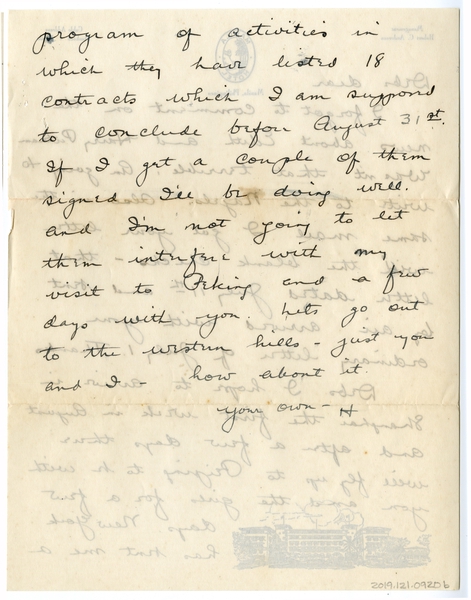 program of activities in
which they have listed 18
contracts which I am supposed
to conclude before August 31st.
If I get a couple of them
signed I'll be doing well.
and I'm not going to let
them interfere with my
visit to Peking and a few
days with you. Lets go out
to the western hills - just you
and I - how about it.
your own - H
2019.121.092Db